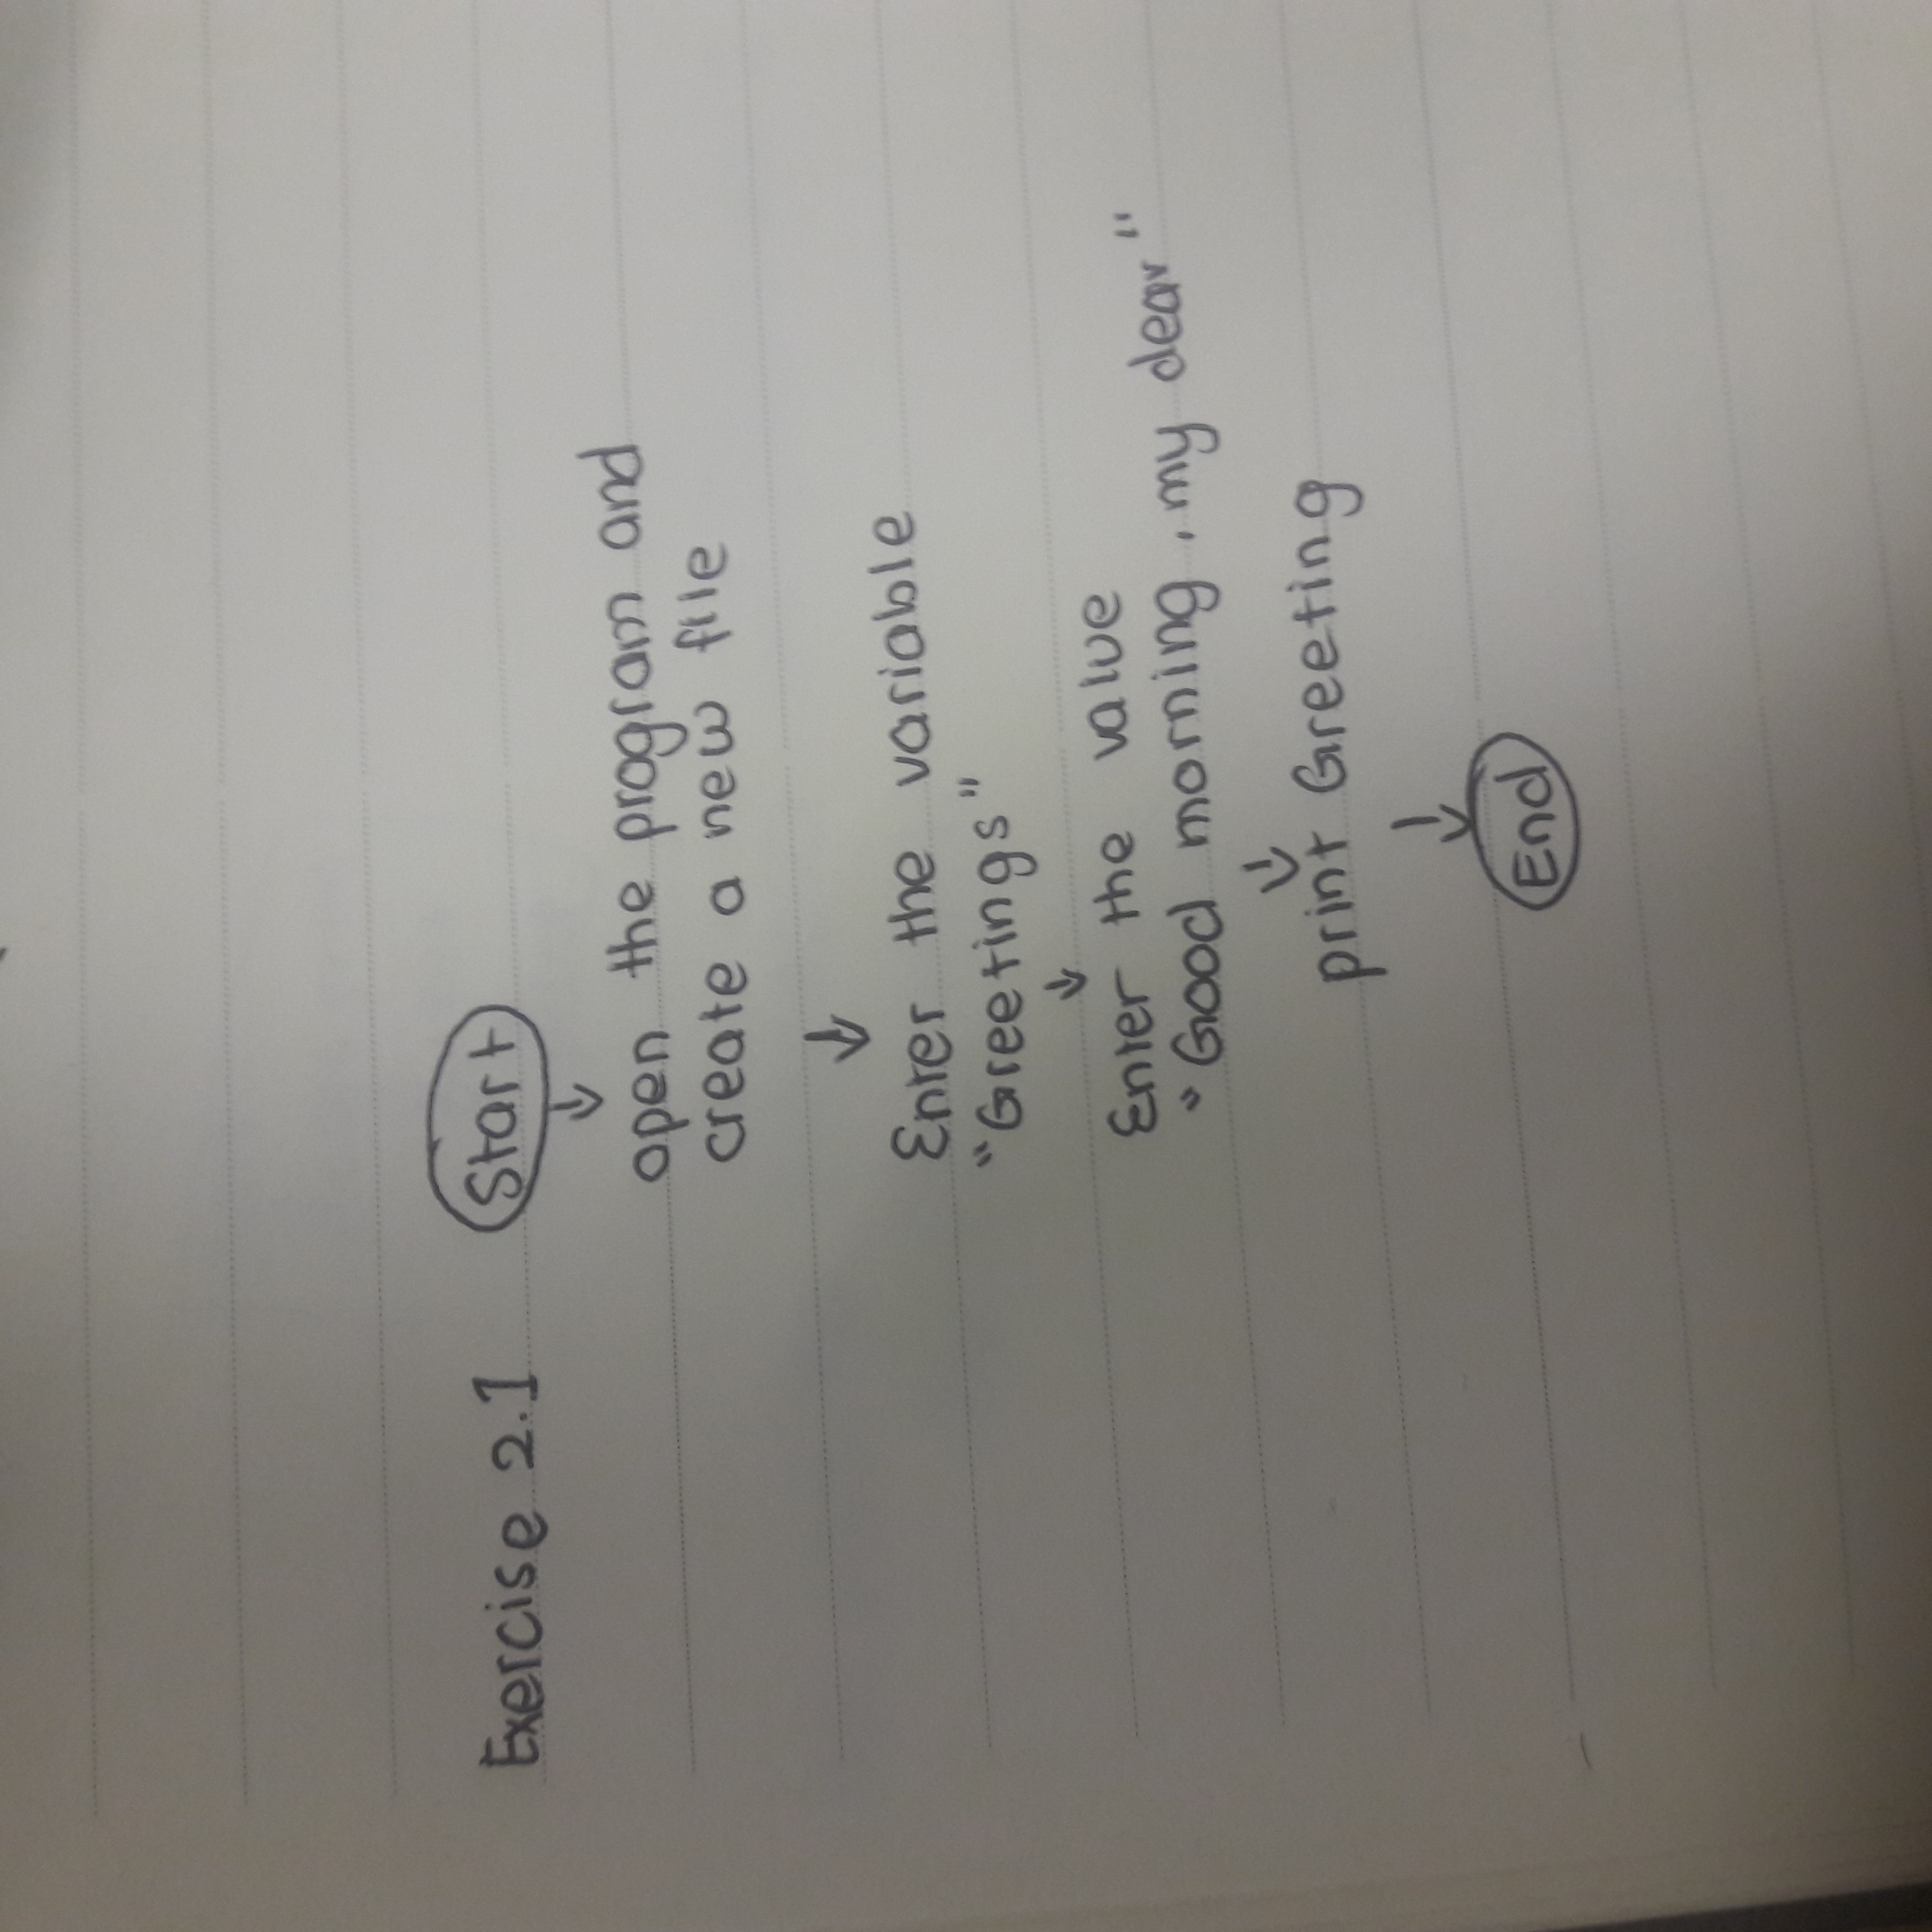 Exercise 2.1
Start
open the program and
create a new file
Enter the variable
"Greetings"
Enter the value
"Good morning, my dear"
print Greeting
End